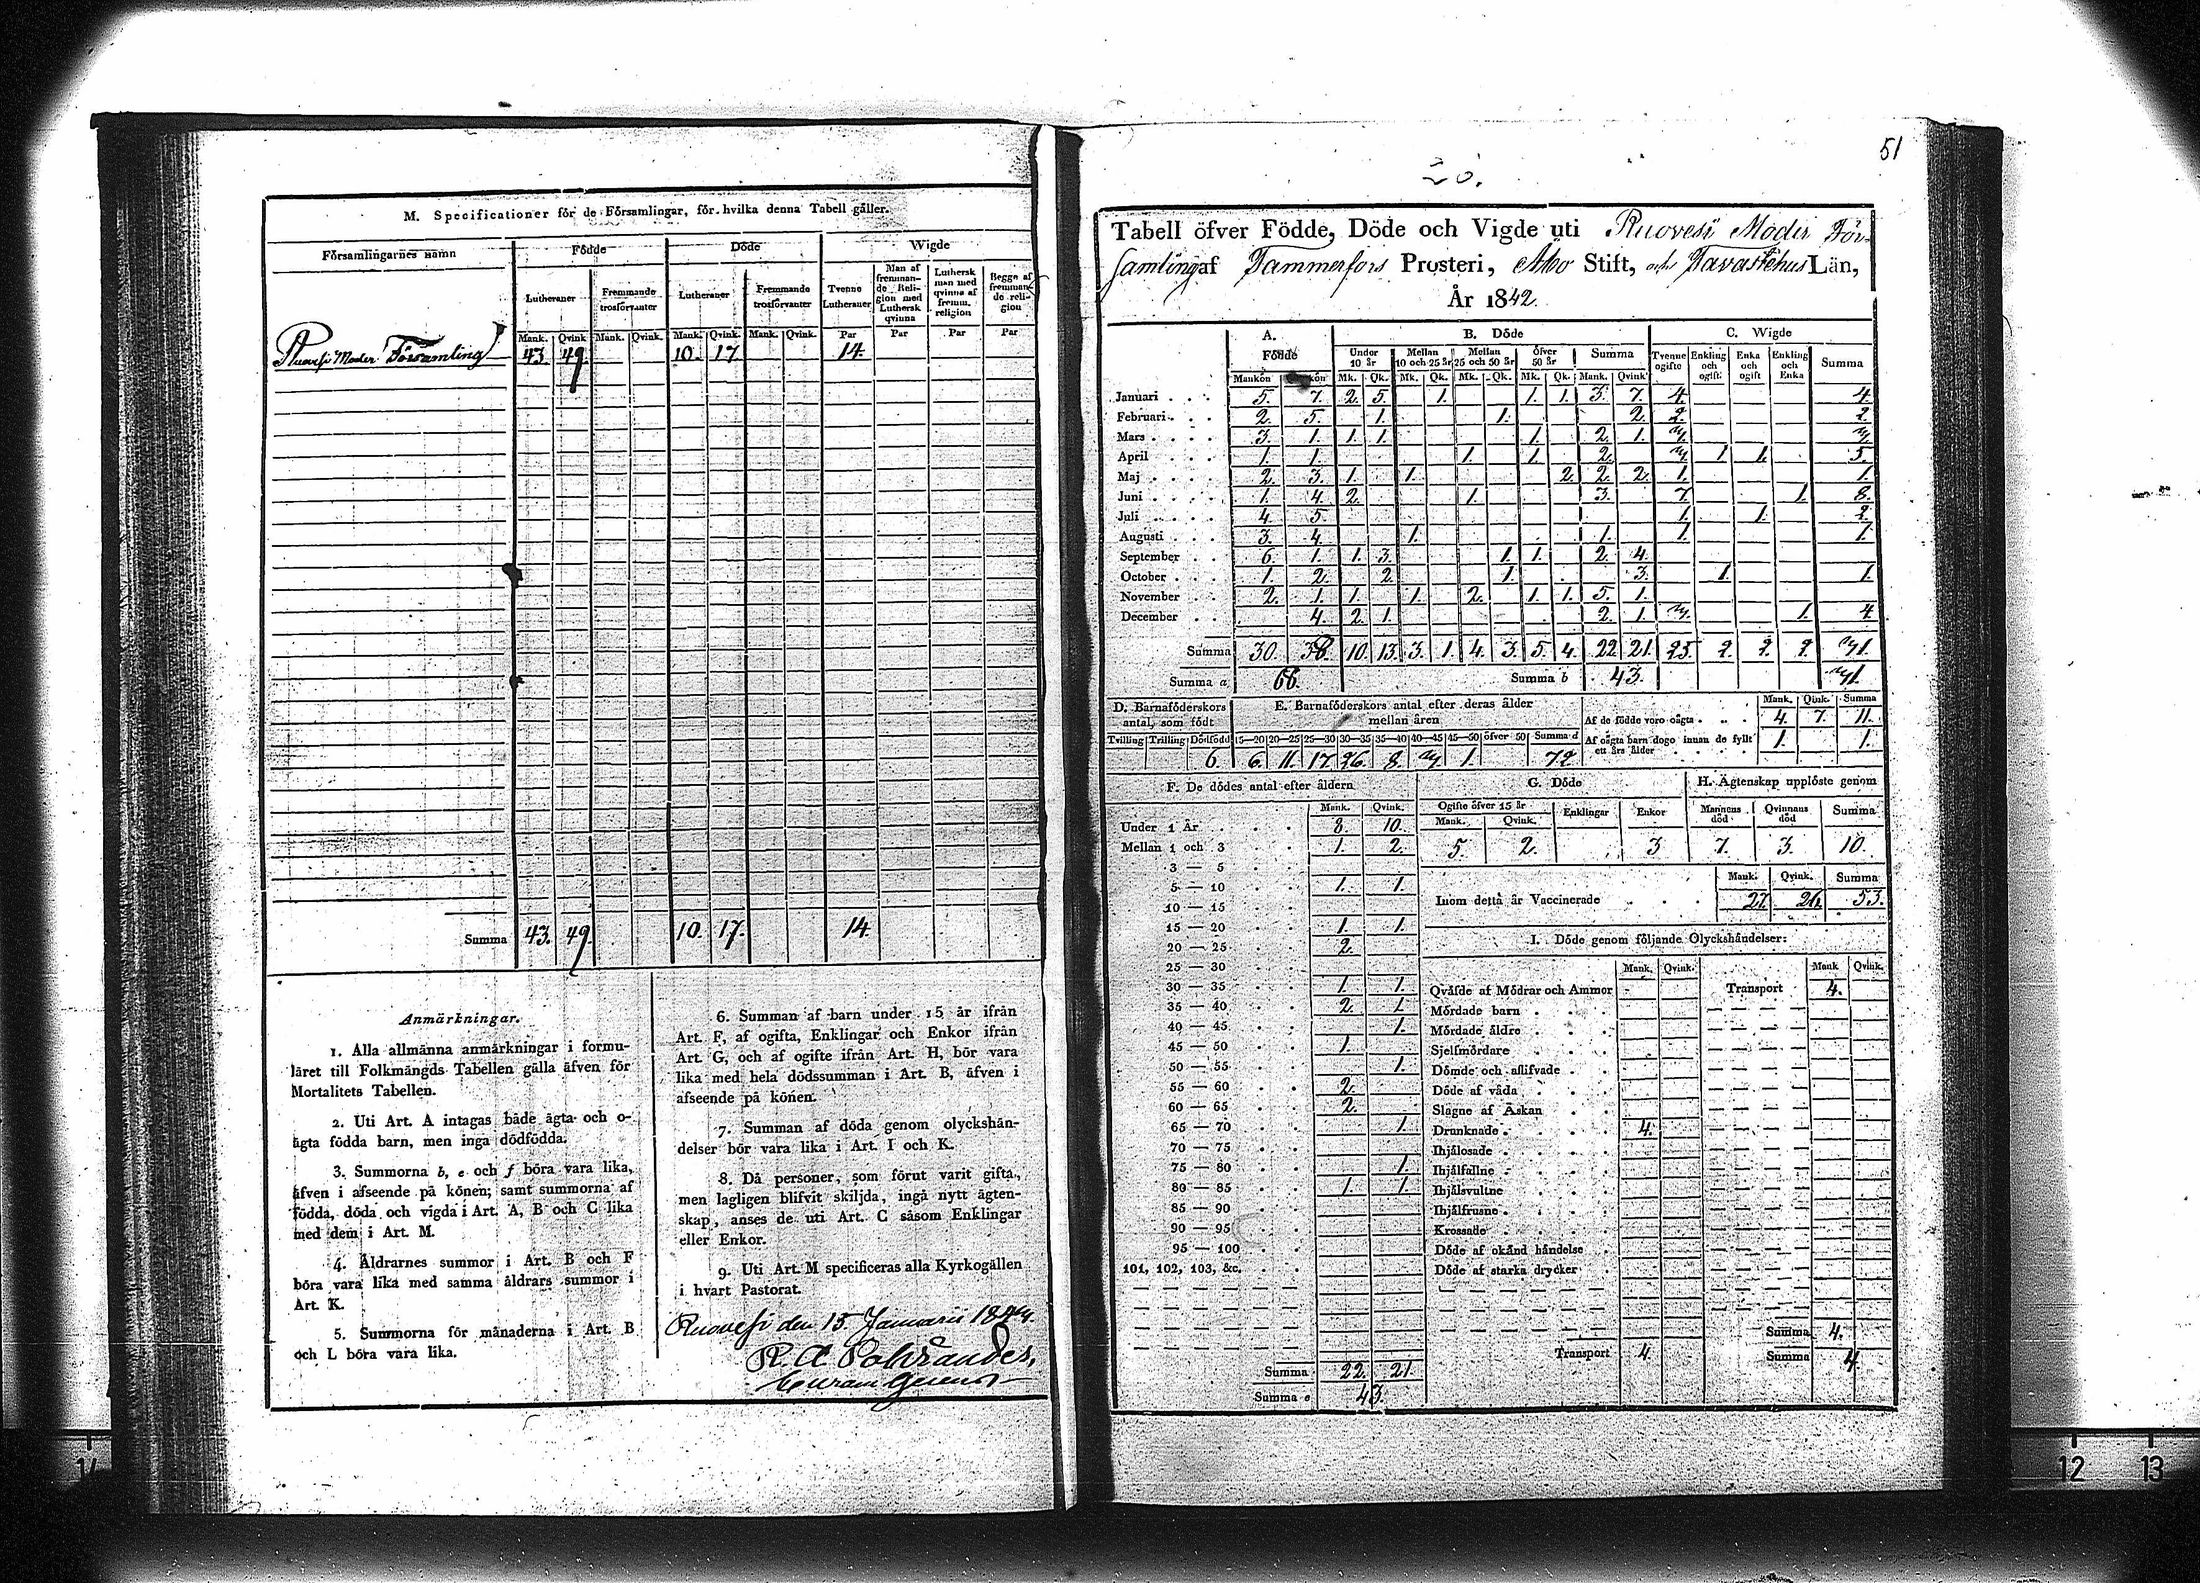 M. Specificationer för de Församlingar, för hvilka denna Tabell gäller.
Församlingarnes namn Födde Döde Wigde
Lutheraner Fremmande trosförvanter Lutheraner Fremmande trosförvanter Tvenne Lutheraner Man af fremmande Religion med Luthersk qvinna Luthersk man med qvinna af fremm. religion Begge af fremmande religion
Mank. Qvink Mank. Qvink. Mank. Qvink. Mank. Qvink. Par Par Par Par
Ruovesi Moder Församling 43 49 10. 17 14.
Summa 43. 49. 10. 17. 14.
Anmärkningar.
1. Alla allmänna anmärkningar i formu-
läret till Folkmängds Tabellen gälla äfven för
Mortalitets Tabellen.
2. Uti Art. A intagas både ägta och o-
ägta födda barn, men inga dödfödda.
3. Summorna b, e och f böra vara lika,
äfven i afseende på könen; samt summorna af
födda, döda och vigda i Art. A, B och C lika
med dem i Art. M.
4. Åldrarnes summor i Art. B och F
böra vara lika med samma åldrars summor i
Art. K.
5. Summorna för månaderna i Art. B
och L böra vara lika.
6. Summan af barn under 15 år ifrån
Art. F, af ogifta, Enklingar och Enkor ifrån
Art. G, och af ogifte ifrån Art. H, bör vara
lika med hela dödssumman i Art. B, äfven i
afseende på könen.
7. Summan af döda genom olyckshän-
delser bör vara lika i Art. I och K.
8. Då personer, som förut varit gifta,
men lagligen blifvit skiljda, ingå nytt ägten-
skap, anses de uti Art. C såsom Enklingar
eller Enkor.
9. Uti Art. M specificeras alla Kyrkogällen
i hvart Pastorat.
Ruovesi den 15 Januarii
51
Tabell öfver Födde, Döde och Vigde uti Ruovesi Moder För-
samling af Tammerfors Prosteri, Åbo Stift, och Tavastehus Län,
År 1842.
A. Födde B. Döde C. Wigde
Under 10 år Mellan 10 och 25 år Mellan 25 och 50 år Öfver 50 år Summa Tvenne ogifte Enkling och ogift Enka och ogift Enkling och Enka Summa
Mankön Mk. Qk. Mk. Qk. Mk. Qk. Mk. Qk. Mank. Qvink
Januari 5. 7. 2. 5. 1. 1. 1. 3. 7. 4. 4.
Februari 2. 5. 1. 1. 2. 2. 2.
Mars 3. 1. 1. 1. 1. 2. 1. 4. 4.
April 1. 1. 1. 1. 2. 1. 1. 5.
Maj 2. 3. 1. 1. 2. 2. 2. 1. 1.
Juni 1. 4. 2. 1. 3. 7. 1. 8.
Juli 4. 5. 1. 1. 2.
Augusti 3. 4. 1. 1. 1. 1.
September 6. 1. 1. 3. 1. 1. 2. 4.
October 1. 2. 2. 1. 3. 1. 1.
November 2. 1. 1. 1. 2. 1. 1. 5. 1.
December 4. 2. 1. 2. 1. 1. 4
Summa 30. 38. 10. 13. 3. 1. 4. 3. 5. 4. 22. 21. 25. 2. 2. 2. 41.
Summa a 68. Summa b 43. 41.
D. Barnaföderskors antal, som födt
Tvilling Trilling Dödfödd
6.
E. Barnaföderskors antal efter deras ålder mellan åren
15—20 20—25 25—30 30—35 35—40 40—45 45—50 öfver 50 Summa d
6. 11. 17. 26. 8. 4. 1. 72
Mank. Qvink. Summa
Af de födde voro oägta 4. 7. 11.
Af oägta barn dogo innan de fyllt ett års ålder 1. 1.
F. De dödes antal efter åldern
Mank. Qvink.
Under 1 År 8. 10.
Mellan 1 och 3 1. 2.
3 — 5
5 — 10 1. 1.
10 — 15
15 — 20 1. 1.
20 — 25 2.
25 — 30
30 — 35 1. 1.
35 — 40 2. 1.
40 — 45 1.
45 — 50 1.
50 — 55 1.
55 — 60 2.
60 — 65 2.
65 — 70 1.
70 — 75
75 — 80 1.
80 — 85 1. 1.
85 — 90
90 — 95
95 — 100
101, 102, 103, &c.
Summa 22. 21.
Summa e 43.
G. Döde
Ogifte öfver 15 år Enklingar Enkor
Mank. Qvink.
5. 2. 3
H. Ägtenskap upplöste genom
Mannens död Qvinnans död Summa
7. 3. 10.
Mank. Qvink. Summa
Inom detta år Vaccinerade 27. 26. 53.
I. Döde genom följande Olyckshändelser:
Mank. Qvink. Mank Qvink.
Qväfde af Mödrar och Ammor Transport 4.
Mördade barn
Mördade äldre
Sjelfmördare
Dömde och aflifvade
Döde af våda
Slagne af Åskan
Drunknade 4.
Ihjälosade
Ihjälfallne
Ihjälsvultne
Ihjälfrusne
Krossade
Döde af okänd händelse
Döde af starka drycker
Summa 4.
Transport 4. Summa 4.
12 13